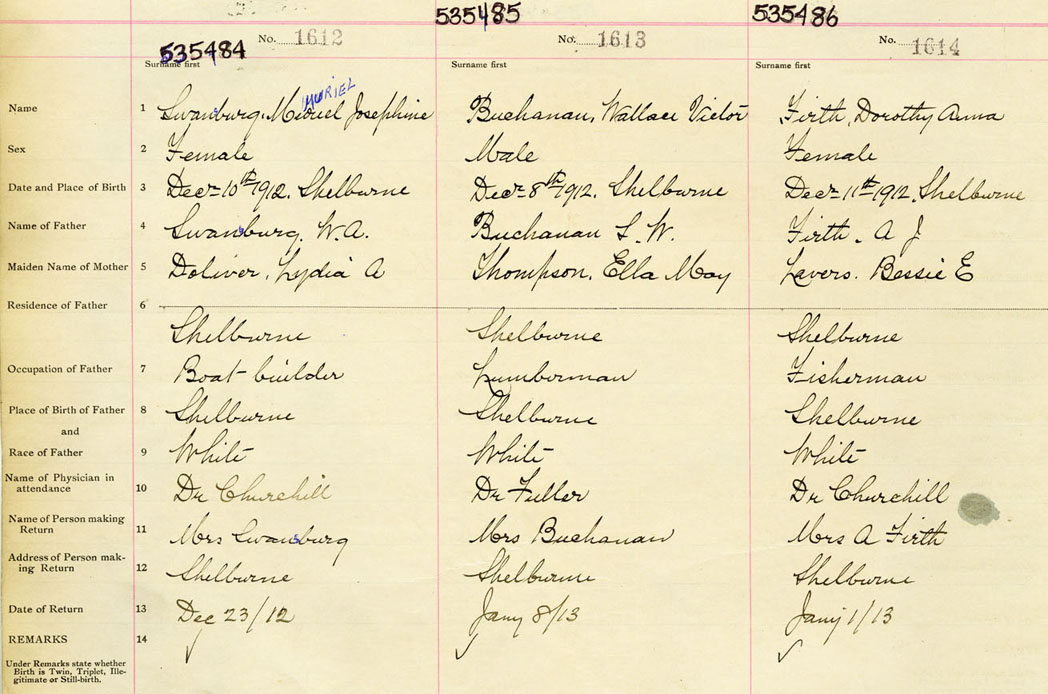 535484
535485
535486
No. 1612
No. 1613
No. 1614
Surname first
Surname first
Surname first
MURIEL
Name 1 Swansburg, Muriel Josephine Buchanan, Wallace Victor Firth, Dorothy Anna
Sex 2 Female Male Female
Date and Place of Birth 3 Decr 10th 1912. Shelburne Decr 8th 1912. Shelburne Decr 11th 1912. Shelburne
Name of Father 4 Swansburg. W.A. Buchanan S. W. Firth. A J
Maiden Name of Mother 5 Doliver, Lydia A Thompson, Ella May Lavers. Bessie E
Residence of Father 6
Shelburne Shelburne Shelburne
Occupation of Father 7 Boat builder Lumberman Fisherman
Place of Birth of Father 8 Shelburne Shelburne Shelburne
and
Race of Father 9 White White White
Name of Physician in
attendance 10 Dr Churchill Dr Fuller Dr Churchill
Name of Person making
Return 11 Mrs Swansburg Mrs Buchanan Mrs A Firth
Address of Person mak-
ing Return 12 Shelburne Shelburne Shelburne
Date of Return 13 Dec 23/12 Jany 8/13 Jany 1/13
REMARKS 14
Under Remarks state whether
Birth is Twin, Triplet, Ille-
gitimate or Still-birth.